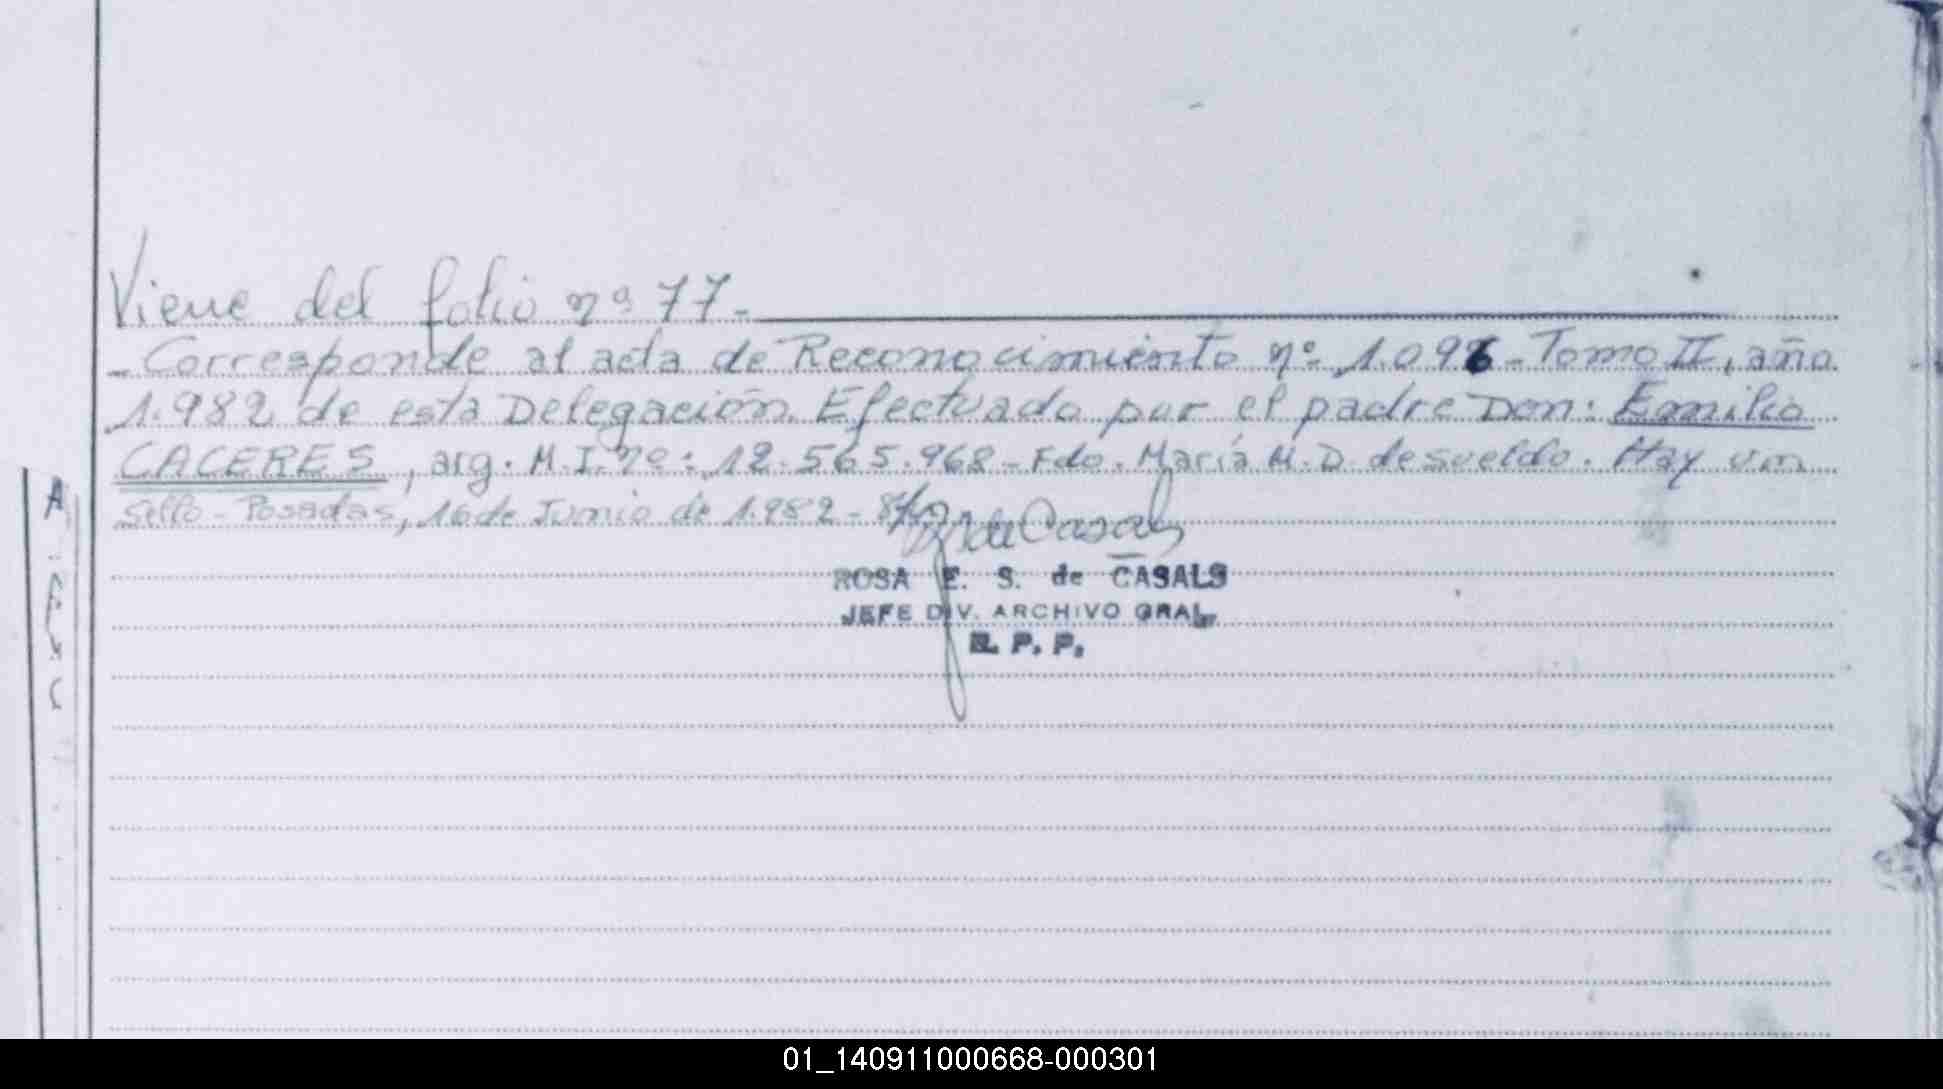 Viene del folio nº 77.-
- Corresponde al acta de Reconocimiento nº 1.096 - Tomo II, año
1.982 de esta Delegación. Efectuado por el padre Don: Emilio
CACERES, arg. M.I. nº: 12.565.968 - Fdo. María M.D. desueldo. Hay un
sello - Posadas, 16 de Junio de 1.982 -
de Casals
ROSA E. S. de CASALS
JEFE DIV. ARCHIVO GRAL
R. P. P.
01_140911000668-000301